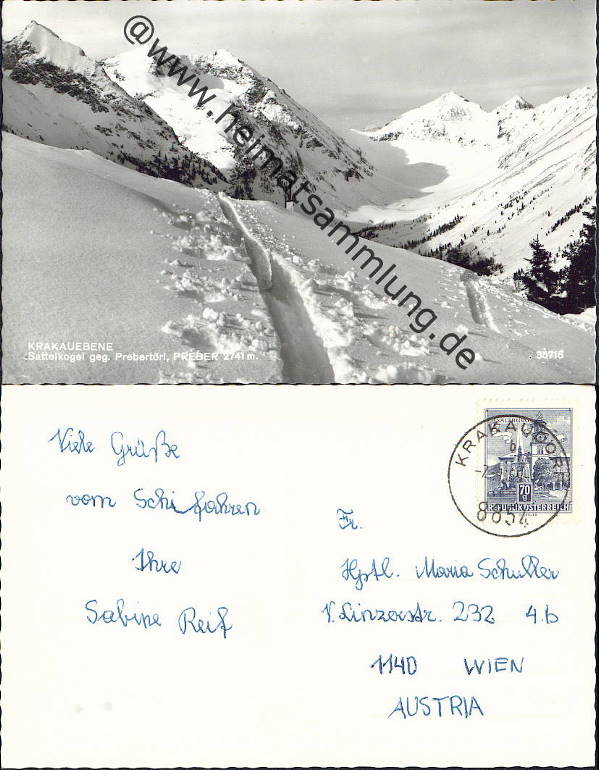 @www.heimatsammlung.de
KRAKAUEBENE
Sattelkogel geg. Prebertörl, PREBER 2741 m.
Viele Grüße
vom Schifahren
Ihre
Sabine Reif
KRAKAUDORF
8854
70
REPUBLIK ÖSTERREICH
Fr.
Hptl. Maria Schuller
V. Linzerstr. 232 4.b
1140 WIEN
AUSTRIA